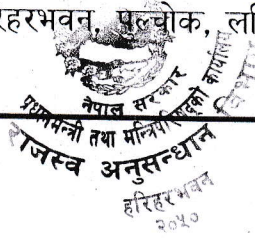 हरभवन, पुल्चोक, ल
नेपाल सरकार
प्रधानमन्त्री तथा मन्त्रिपरिषद्को कार्यालय
राजस्व अनुसन्धान विभाग
हरिहरभवन
२०५०